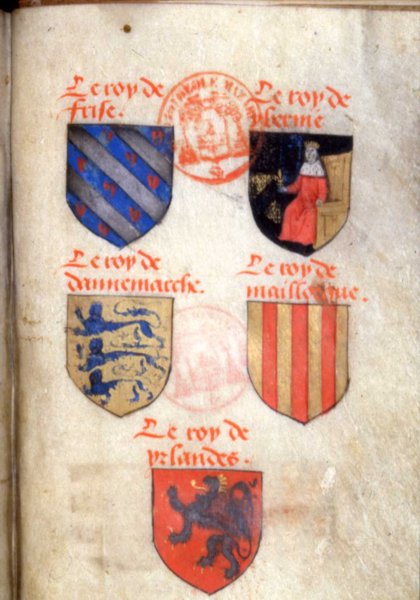 Le roy de
frise.
Le roy de
ybernie
Le roy de
dannemarche.
Le roy de
maillorque.
Le roy de
yrlandes.